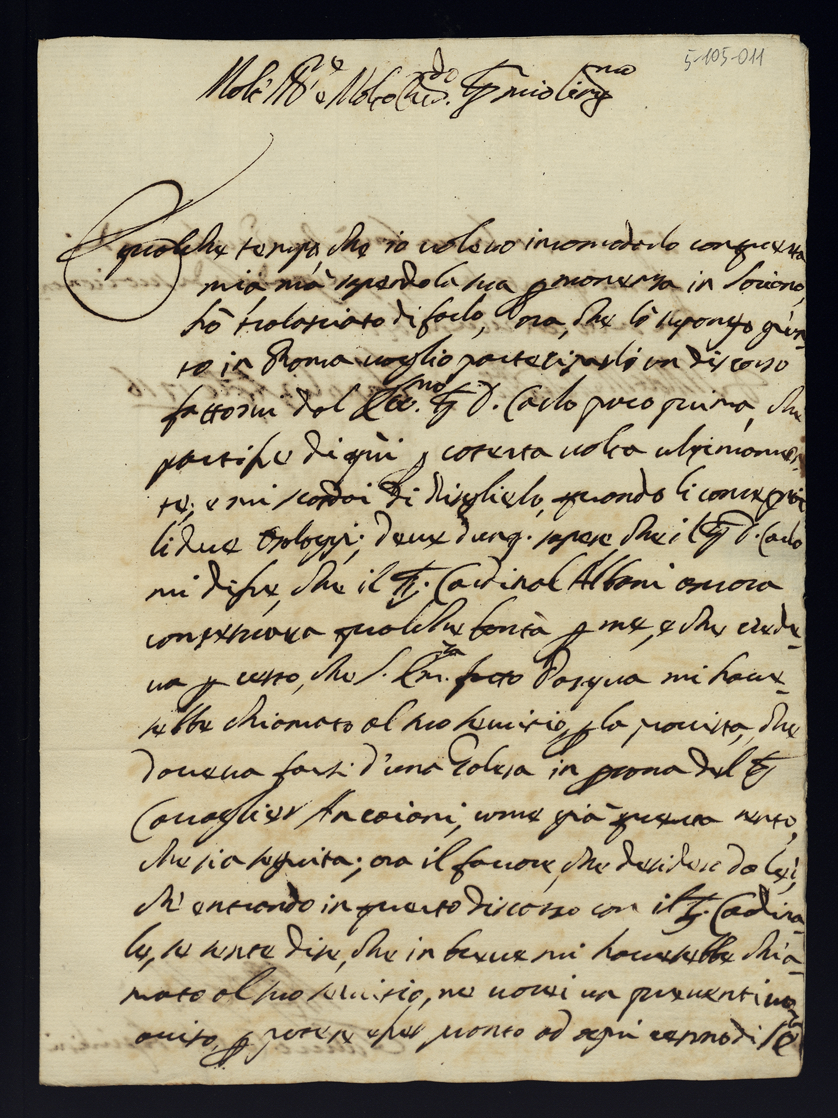 5-105-011
Molt' Ill.re e Molto Rev.do Sig. mio
È qualche tempo, che io volevo incomodarlo con questa
mia mà sapendola sua permanenza in
hò tralasciato di farlo, ora, che lò supongo giun-
to in Roma voglio parteciparli un discorso
fattomi dal Ecc.mo Sig. D. Carlo poco prima, che
partisse di quì p costesta volta ultimamen-
te, e mi scordai di dirglielo, quando li consegnai
li due orologgi; deve dunq. sapere, che il Sig. D. Carlo
mi disse, che il Sig. Cardinal Albani ancora
conservava qualche bontà p me, e che crede-
va p certo, che S. Em.za fatto Pasqua mi have-
rebbe chiamato al suo servizio, p la provista, che
doveva farsi d'una in persona del Sig.
Cavaglier Ancaiani, come già questa sento,
che sia seguita; ora il favore, che desidero da lei,
ch' entrando in questo discorso con il Sig. Cardina-
le, se sente dire, che in breve mi haverebbe chia-
mato al suo servizio, ne vorei un preventivo
aviso, p potere esser pronto ad ogni cenno di